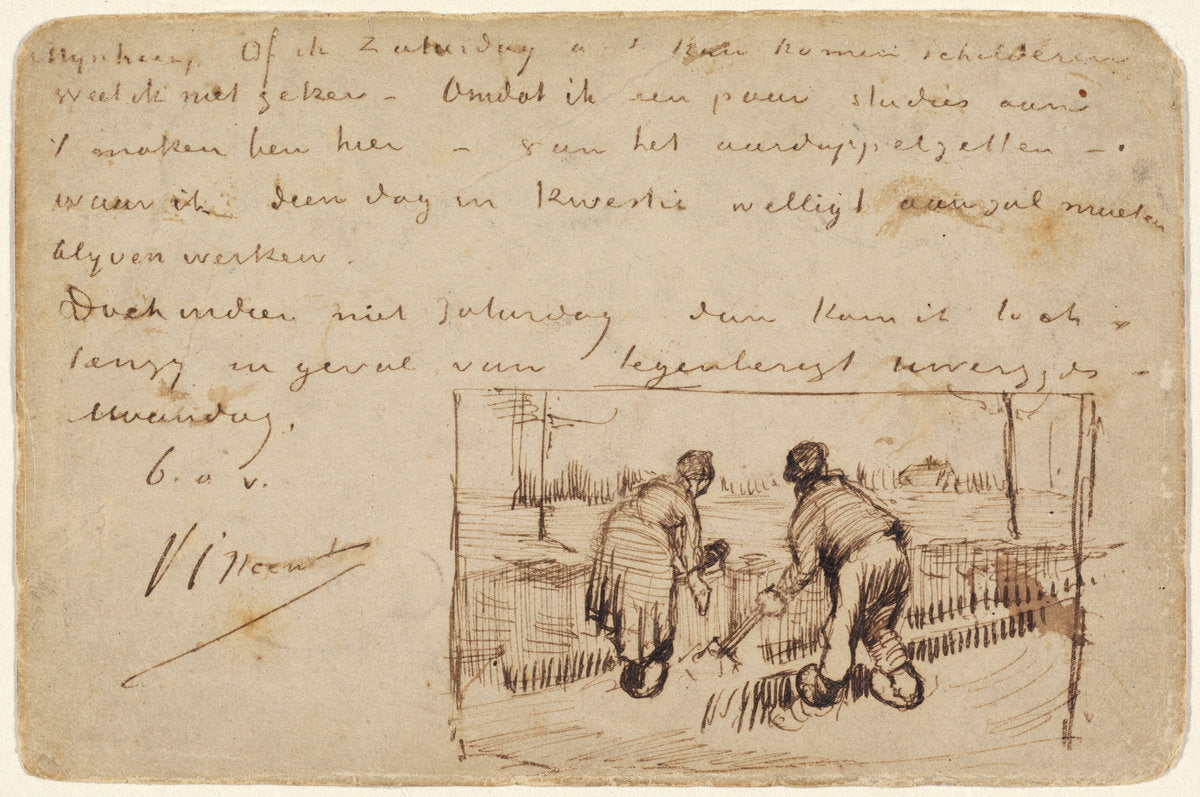 Mynheer, Of ik Zaturdag a s kan komen schilderen
weet ik niet zeker – Omdat ik een paar studies aan
't maken ben hier – van het aardappelzetten –.
waar ik dien dag in kwestie welligt aan zal moeten
blyven werken.
Doch indien niet Zaturdag dan kom ik toch –
tenzy in geval van tegenberigt Uwerzyds –
Maandag.
b. a v.
Vincent